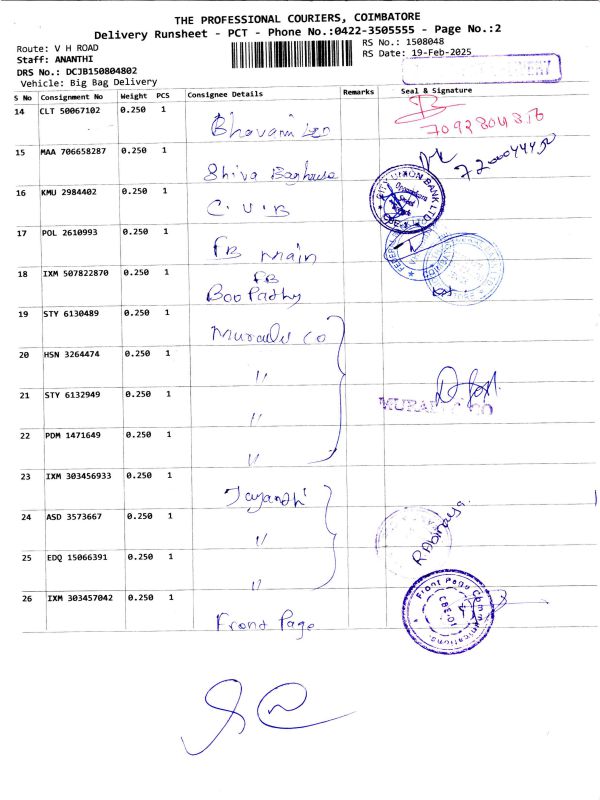 THE PROFESSIONAL COURIERS, COIMBATORE
Delivery Runsheet - PCT - Phone No.:0422-3505555 - Page No.:2
Route: V H ROAD
RS No.: 1508048
Staff: ANANTHI
RS Date: 19-Feb-2025
DRS No.: DCJB150804802
Vehicle: Big Bag Delivery
S No Consignment No Weight PCS Consignee Details Remarks Seal & Signature
14 CLT 50067102 0.250 1
15 MAA 706658287 0.250 1 Shiva
16 KMU 2984402 0.250 1 C.U.B
CITY UNION BANK LTD
17 POL 2610993 0.250 1 FB main
18 IXM 507822870 0.250 1 FB
Boo Pathy
19 STY 6130489 0.250 1 Murali Co
20 HSN 3264474 0.250 1 "
21 STY 6132949 0.250 1 "
22 PDM 1471649 0.250 1 "
23 IXM 303456933 0.250 1 Jayanthi
24 ASD 3573667 0.250 1 "
R Abinaya
25 EDQ 15066391 0.250 1 "
26 IXM 303457042 0.250 1 Front Page
Front Page Communications.